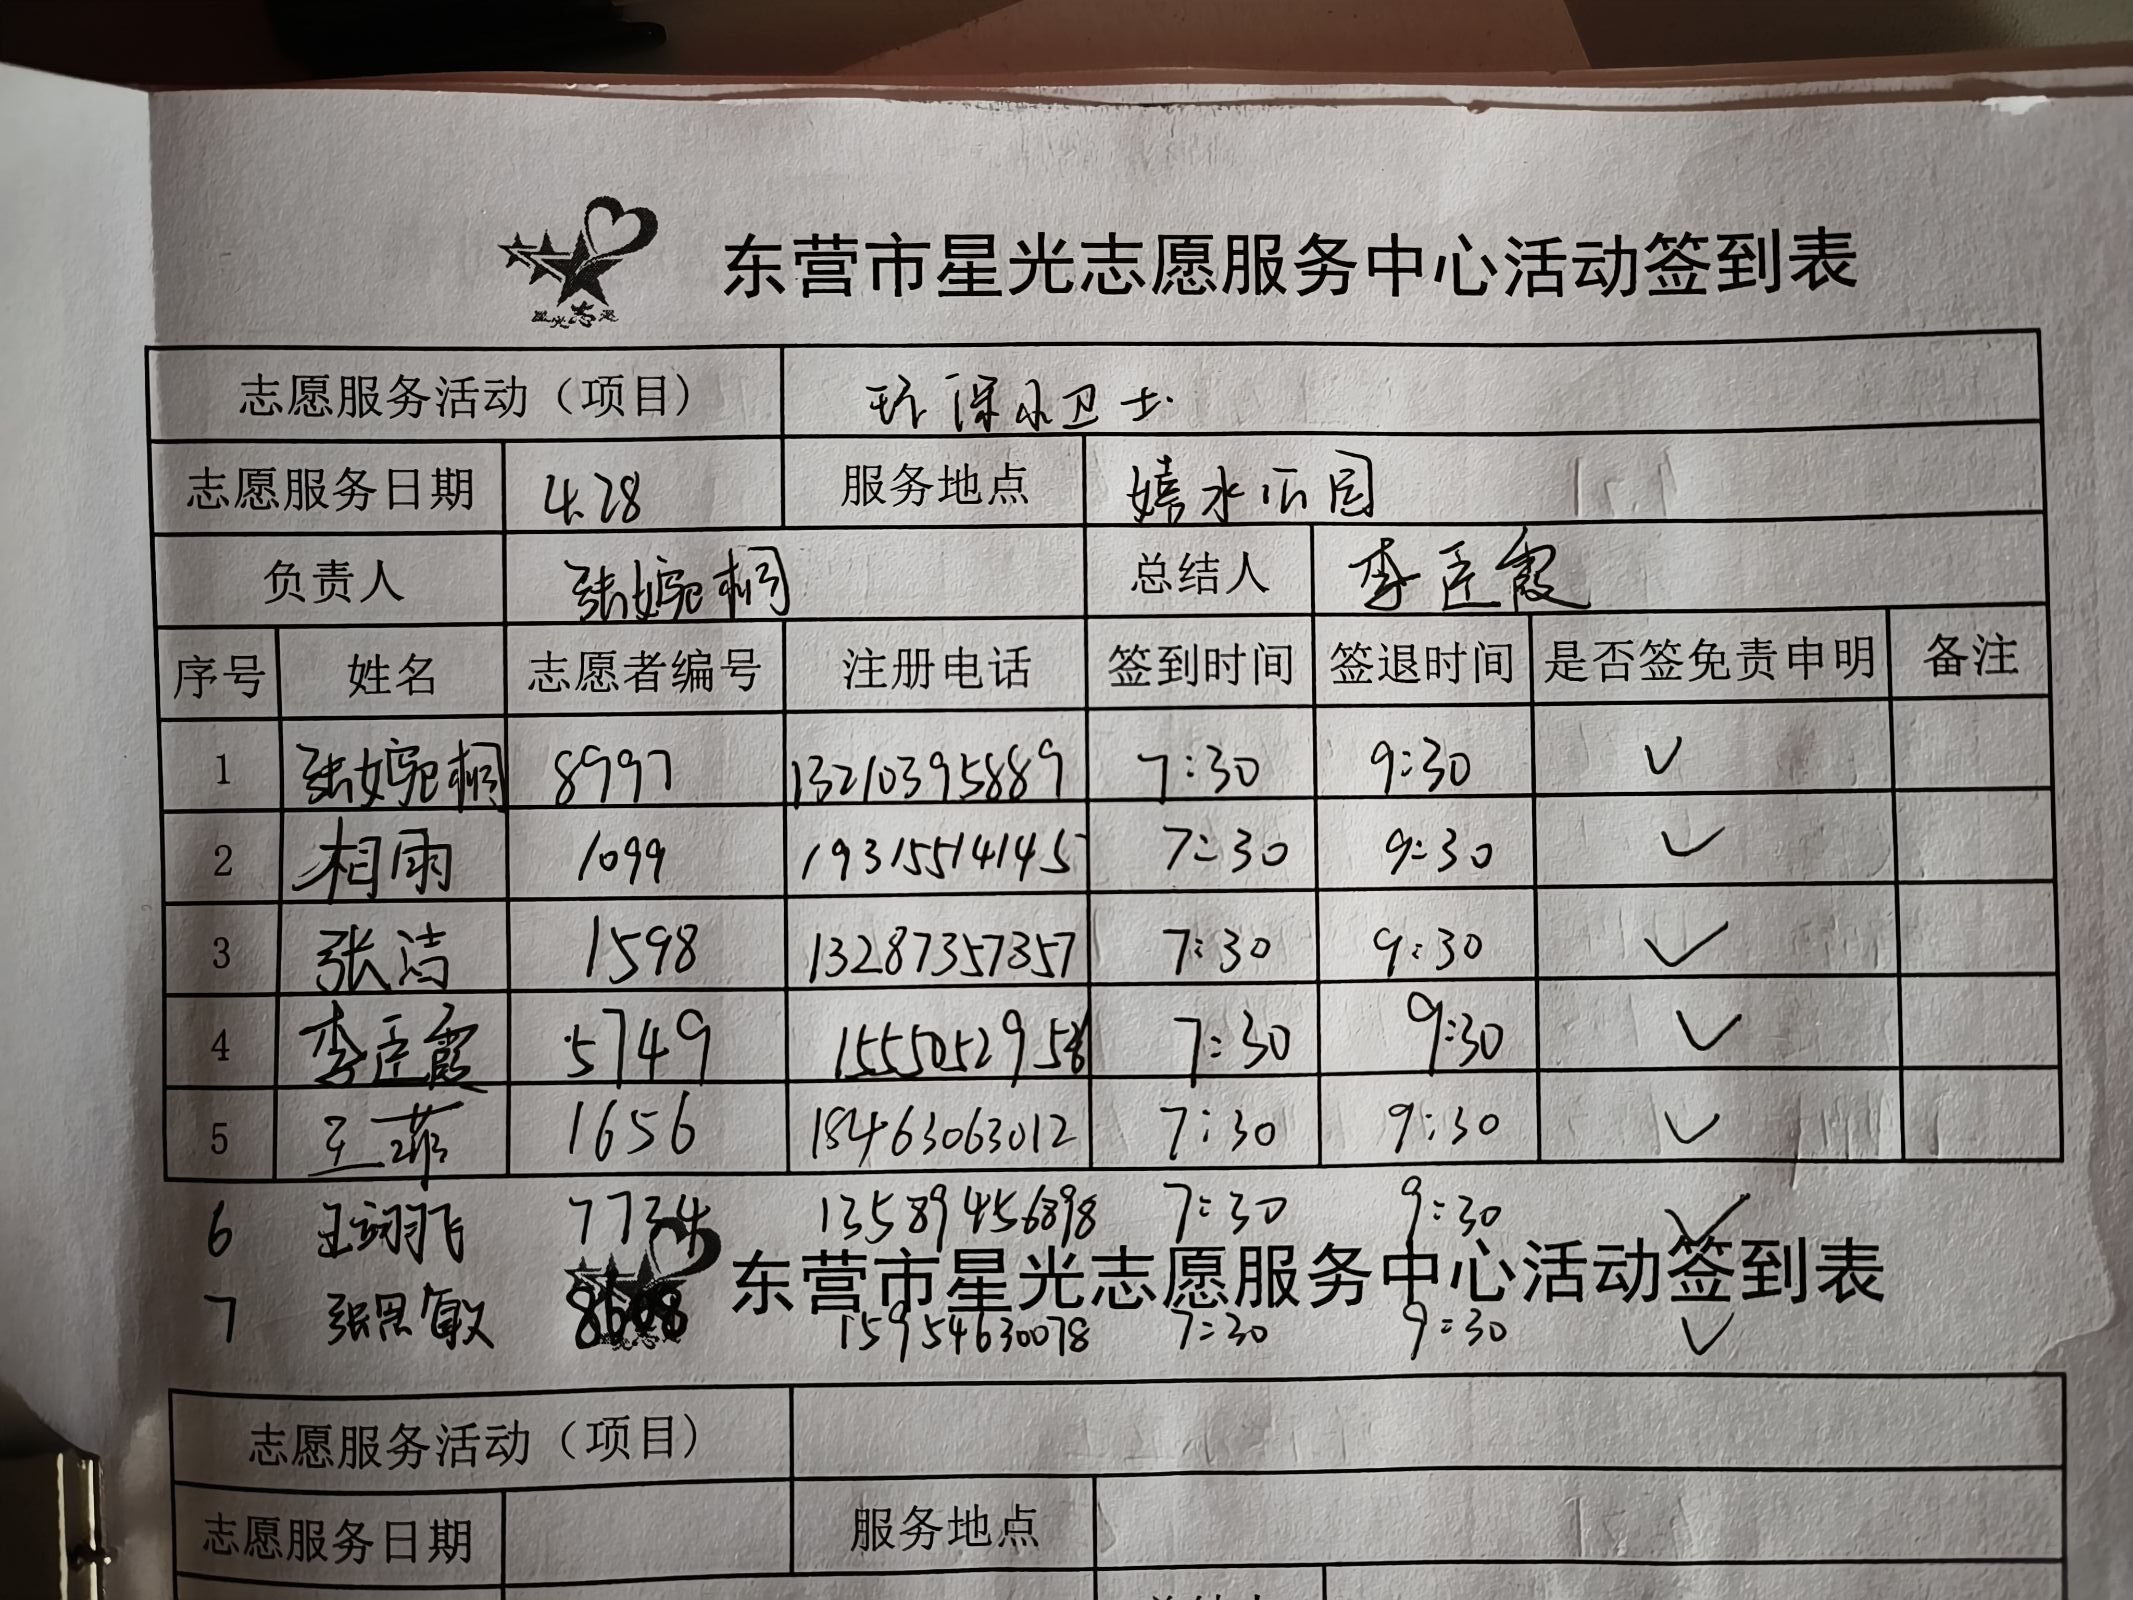 星光志愿
东营市星光志愿服务中心活动签到表
志愿服务活动（项目） 环保小卫士
志愿服务日期 4.28 服务地点 嬉水公园
负责人 张婉桐 总结人 李匠霞
序号 姓名 志愿者编号 注册电话 签到时间 签退时间 是否签免责申明 备注
1 张婉桐 8997 13210395889 7:30 9:30 ✓
2 相雨 1099 19315514145 7:30 9:30 ✓
3 张洁 1598 13287357357 7:30 9:30 ✓
4 李匠霞 5749 7:30 9:30 ✓
5 王菲 1656 18463063012 7:30 9:30 ✓
6 王翊飞 7734 13589456898 7:30 9:30 ✓
东营市星光志愿服务中心活动签到表
7 张思敏 8608 15954630078 7:30 9:30 ✓
志愿服务活动（项目）
志愿服务日期 服务地点